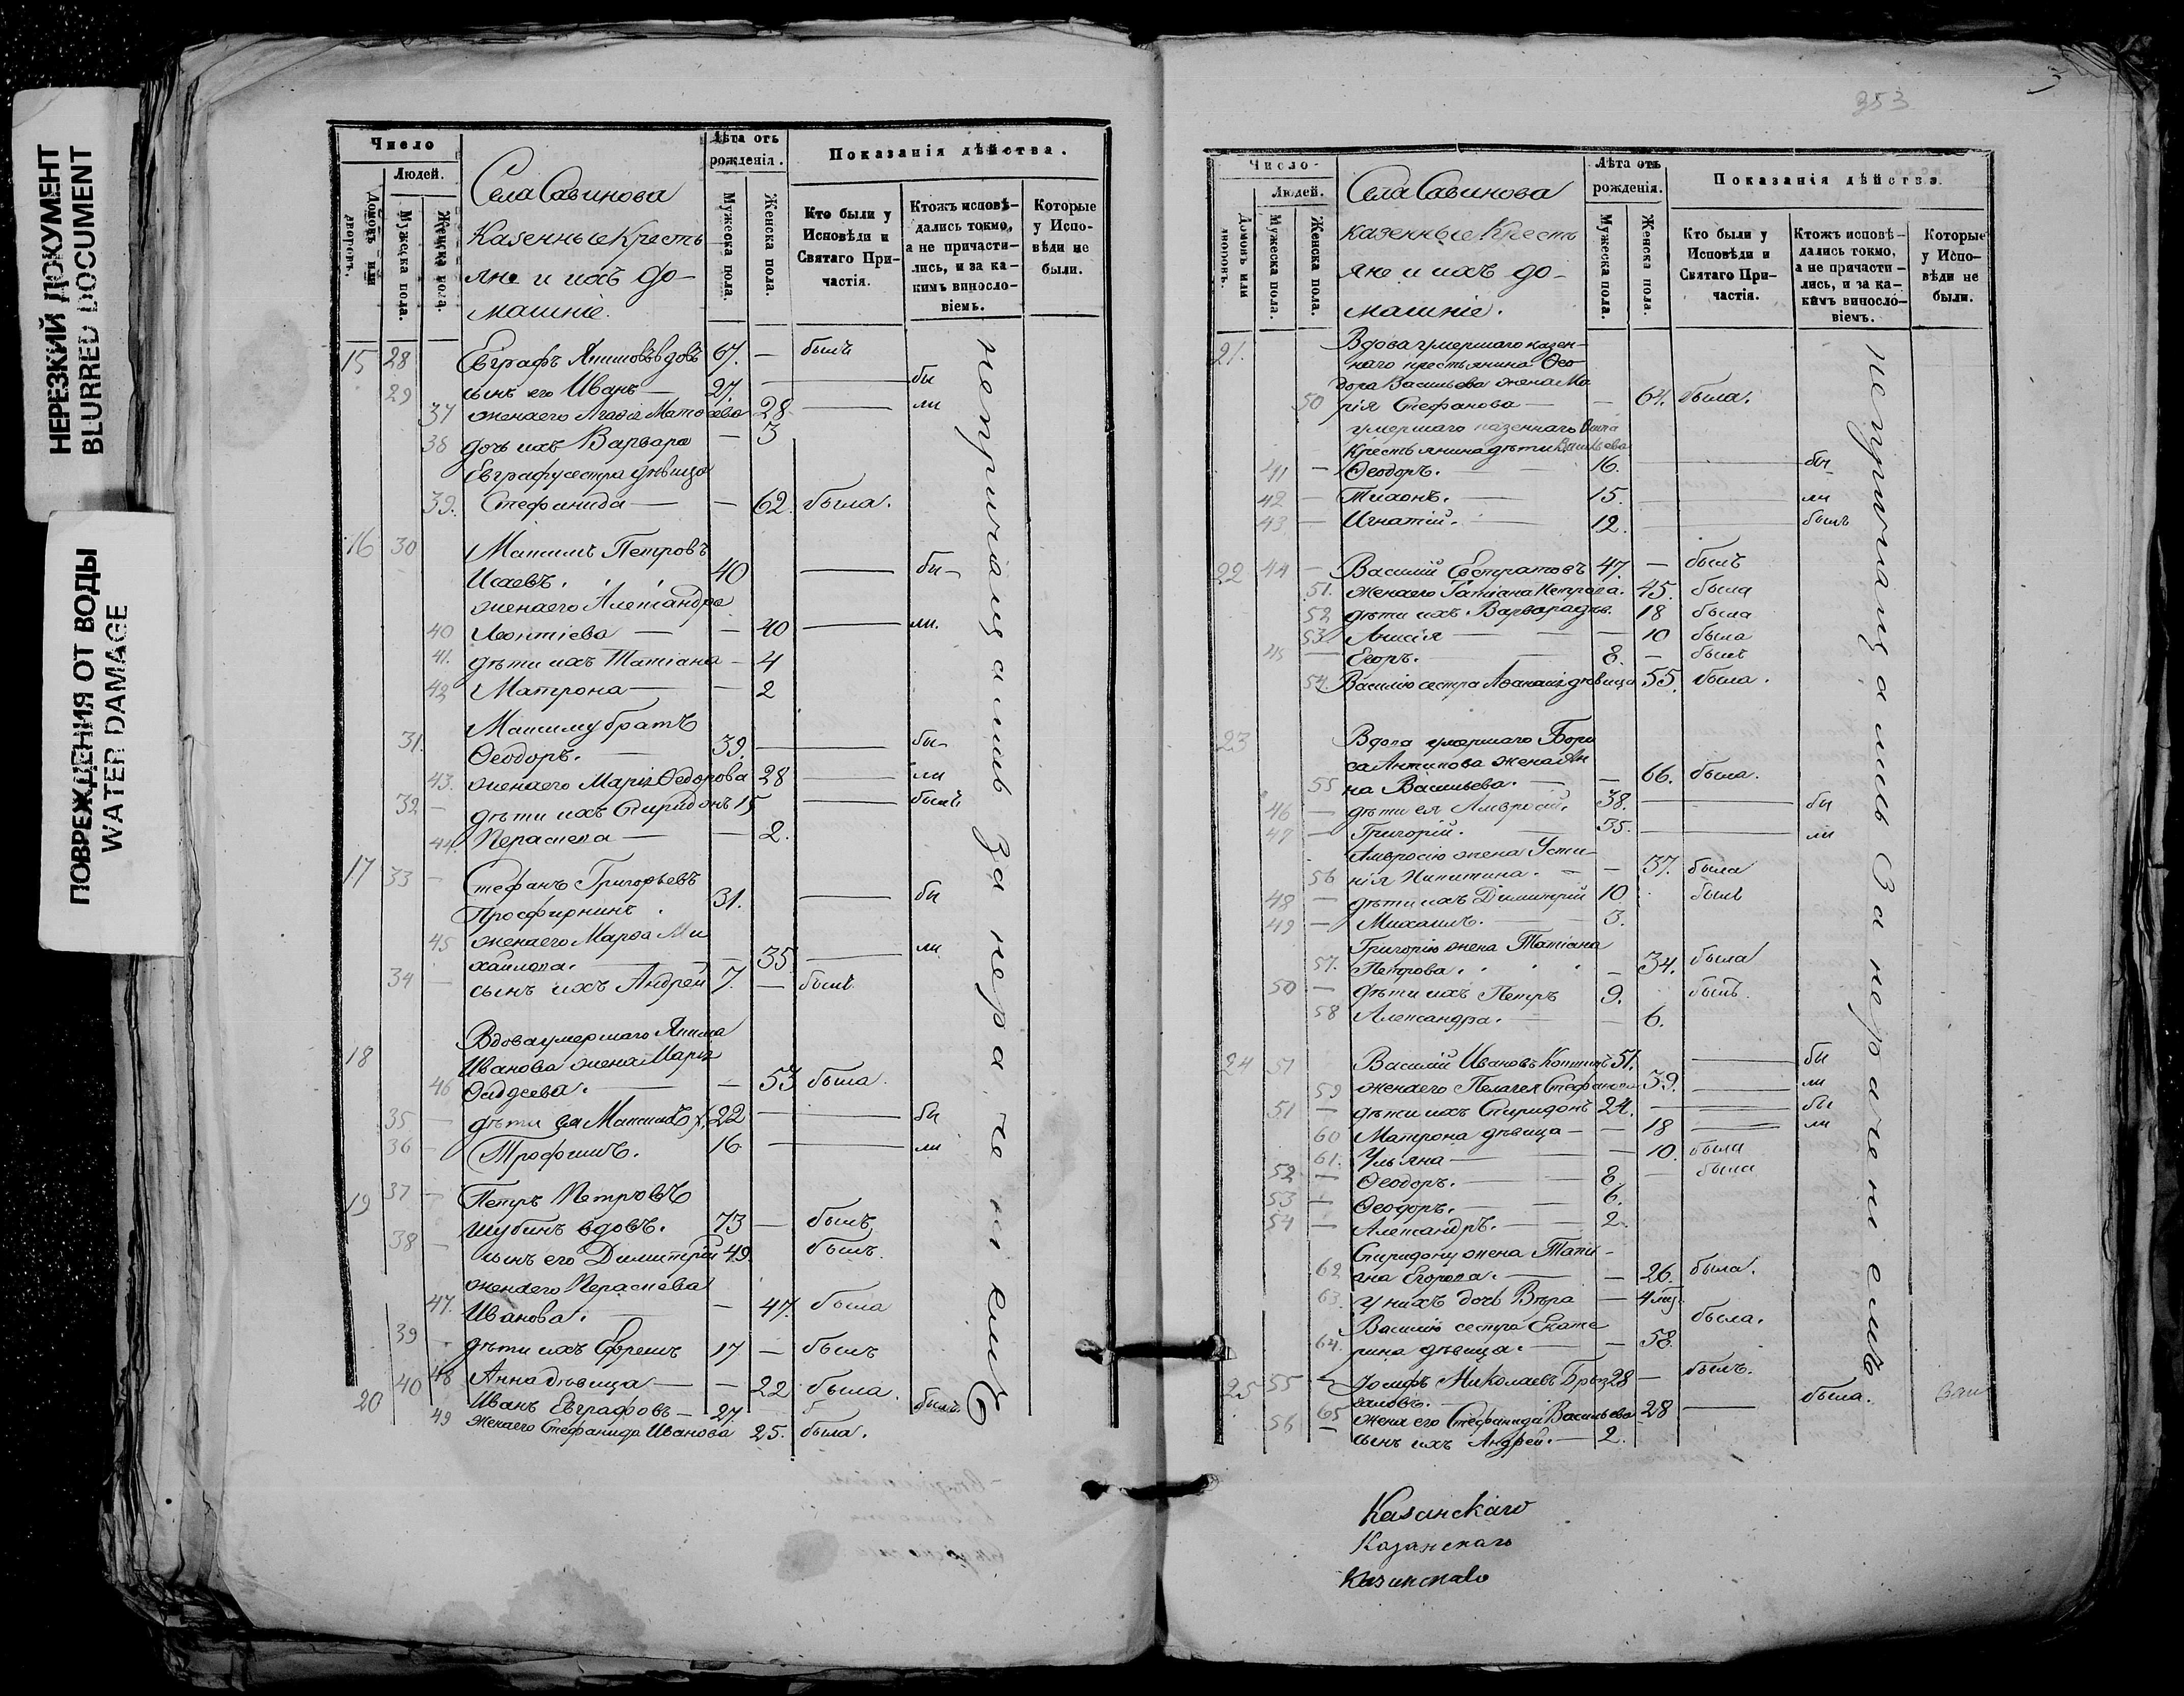 НЕРЕЗКИЙ ДОКУМЕНТ
BLURRED DOCUMENT
ПОВРЕЖДЕНИЯ ОТ ВОДЫ
WATER DAMAGE
Число
Людей.
Домовъ или дворовъ.
Мужеска пола.
Женска пола.
Села Савинова
Казенные Кресть
яне и ихъ до-
машніе.
Лѣта отъ рожденія.
Мужеска пола.
Женска пола.
Показанія дѣйства.
Кто были у Исповѣди и Святаго Причастія.
Ктожъ исповѣ-
дались токмо,
а не причасти-
лись, и за ка-
кимъ винословіемъ.
Которые
у Испо-
вѣди не
были.
15 28 Евграфъ Якимовъ вдовъ 67. — былъ
29 сынъ его Иванъ — 27. — бы
37 жена его Агафія Матѳеева 28 — ли
38 дочь ихъ Варвара — 3
Евграфу сестра дѣвица
39. Стефанида — — 62. была.
16 30 Максимъ Петровъ
Исаевъ. 40 — бы
жена его Александра
40 Леонтіева — — 40 — ли.
41. дѣти ихъ Татіана — 4
42 Матрона — — 2
Максиму братъ
31. Ѳеодоръ. — 39. — бы
43. жена его Марія Ѳедорова 28 — ли
32 — дѣти ихъ Спиридонъ 15 — былъ
44. Параскева — — 2.
17 33 — Стефанъ Григорьевъ
Просфирнинъ. 31. — бы
45 жена его Марѳа Ми
хайлова. — 35 — ли
34 — сынъ ихъ Андрей 7. — былъ.
18 Вдова умершаго Якима
Иванова жена Марія
46 Ѳаддеева. — — 53 была.
35 — дѣти ея Максимъ х. 22 — бы
36 — Трофимъ. 16 — ли
19 37 — Петръ Петровъ
Шубинъ вдовъ. 73 — былъ
38 — сынъ его Димитрій 49. былъ.
жена его Параскева
47. Иванова. — — 47. была
39 — дѣти ихъ Ефремъ 17 — былъ
48 Анна дѣвица — — 22 была.
20 40 Иванъ Евграфовъ — 27. былъ
49 жена его Стефанида Иванова 25. была.
не причащались за нераченіемъ
353
Число
Людей.
Домовъ или дворовъ.
Мужеска пола.
Женска пола.
Села Савинова
казенные Кресть
яне и ихъ до-
машніе.
Лѣта отъ рожденія.
Мужеска пола.
Женска пола.
Показанія дѣйства.
Кто были у
Исповѣди и
Святаго При-
частія.
Ктожъ исповѣ-
дались токмо,
а не причасти-
лись, и за ка-
кимъ винословіемъ.
Которые
у Испо-
вѣди не
были.
21. Вдова умершаго казен-
наго крестьянина Ѳео
дора Васильева жена Ма
50 рія Стефанова — — 64. была.
умершаго казеннаго
крестьянина дѣти Васильева
41 — Ѳеодоръ. 16. — бы
42 — Тихонъ. — 15. — ли
43 — Игнатій. — 12. — былъ
22 44 — Василій Евстратовъ 47. — былъ
51. жена его Татіана Петрова. 45. была
52 дѣти ихъ Варвара дѣв. 18 была
53. Анисія — — 10 была
45 — Егоръ. — 8. — былъ
54. Василію сестра Аѳанасія дѣвица 55. была.
23 Вдова умершаго Бори
са Антипова жена Ан
55 на Васильева. — — 66. была.
46 — дѣти ея Амвросій. 38. — бы
47 — Григорій. 35. — ли
Амвросію жена Усти-
56 нія Никитина. — — 37. была
48 — дѣти ихъ Димитрій 10 былъ
49 — Михаилъ. — 3.
Григорію жена Татіана
57. Петрова. — 34. была
50 — дѣти ихъ Петръ 9. былъ.
58 Александра. — — 6.
24 51 Василій Ивановъ 51. — бы
59 жена его Пелагея Стефанова 39. — ли
51 — дѣти ихъ Спиридонъ 24. — бы
60 Матрона дѣвица — — 18 — ли
61. Ульяна — — 10. была
52 — Ѳеодоръ. — 8. — была
53 — Ѳеодоръ. — 6.
54 — Александръ. — 2.
Спиридону жена Тати-
62 яна Егорова. — — 26. была.
63. у нихъ дочь Вѣра — 4 мц.
Василію сестра Екате
64. рина дѣвица. — — 58. была.
25 55 Іосифъ Николаевъ 28 — былъ.
65 жена его Стефанида Васильева 28 — была.
56 — сынъ ихъ Андрей. — 2.
не причащались За нераченіемъ
Казанскаго
Казанскаго
Казанскаго